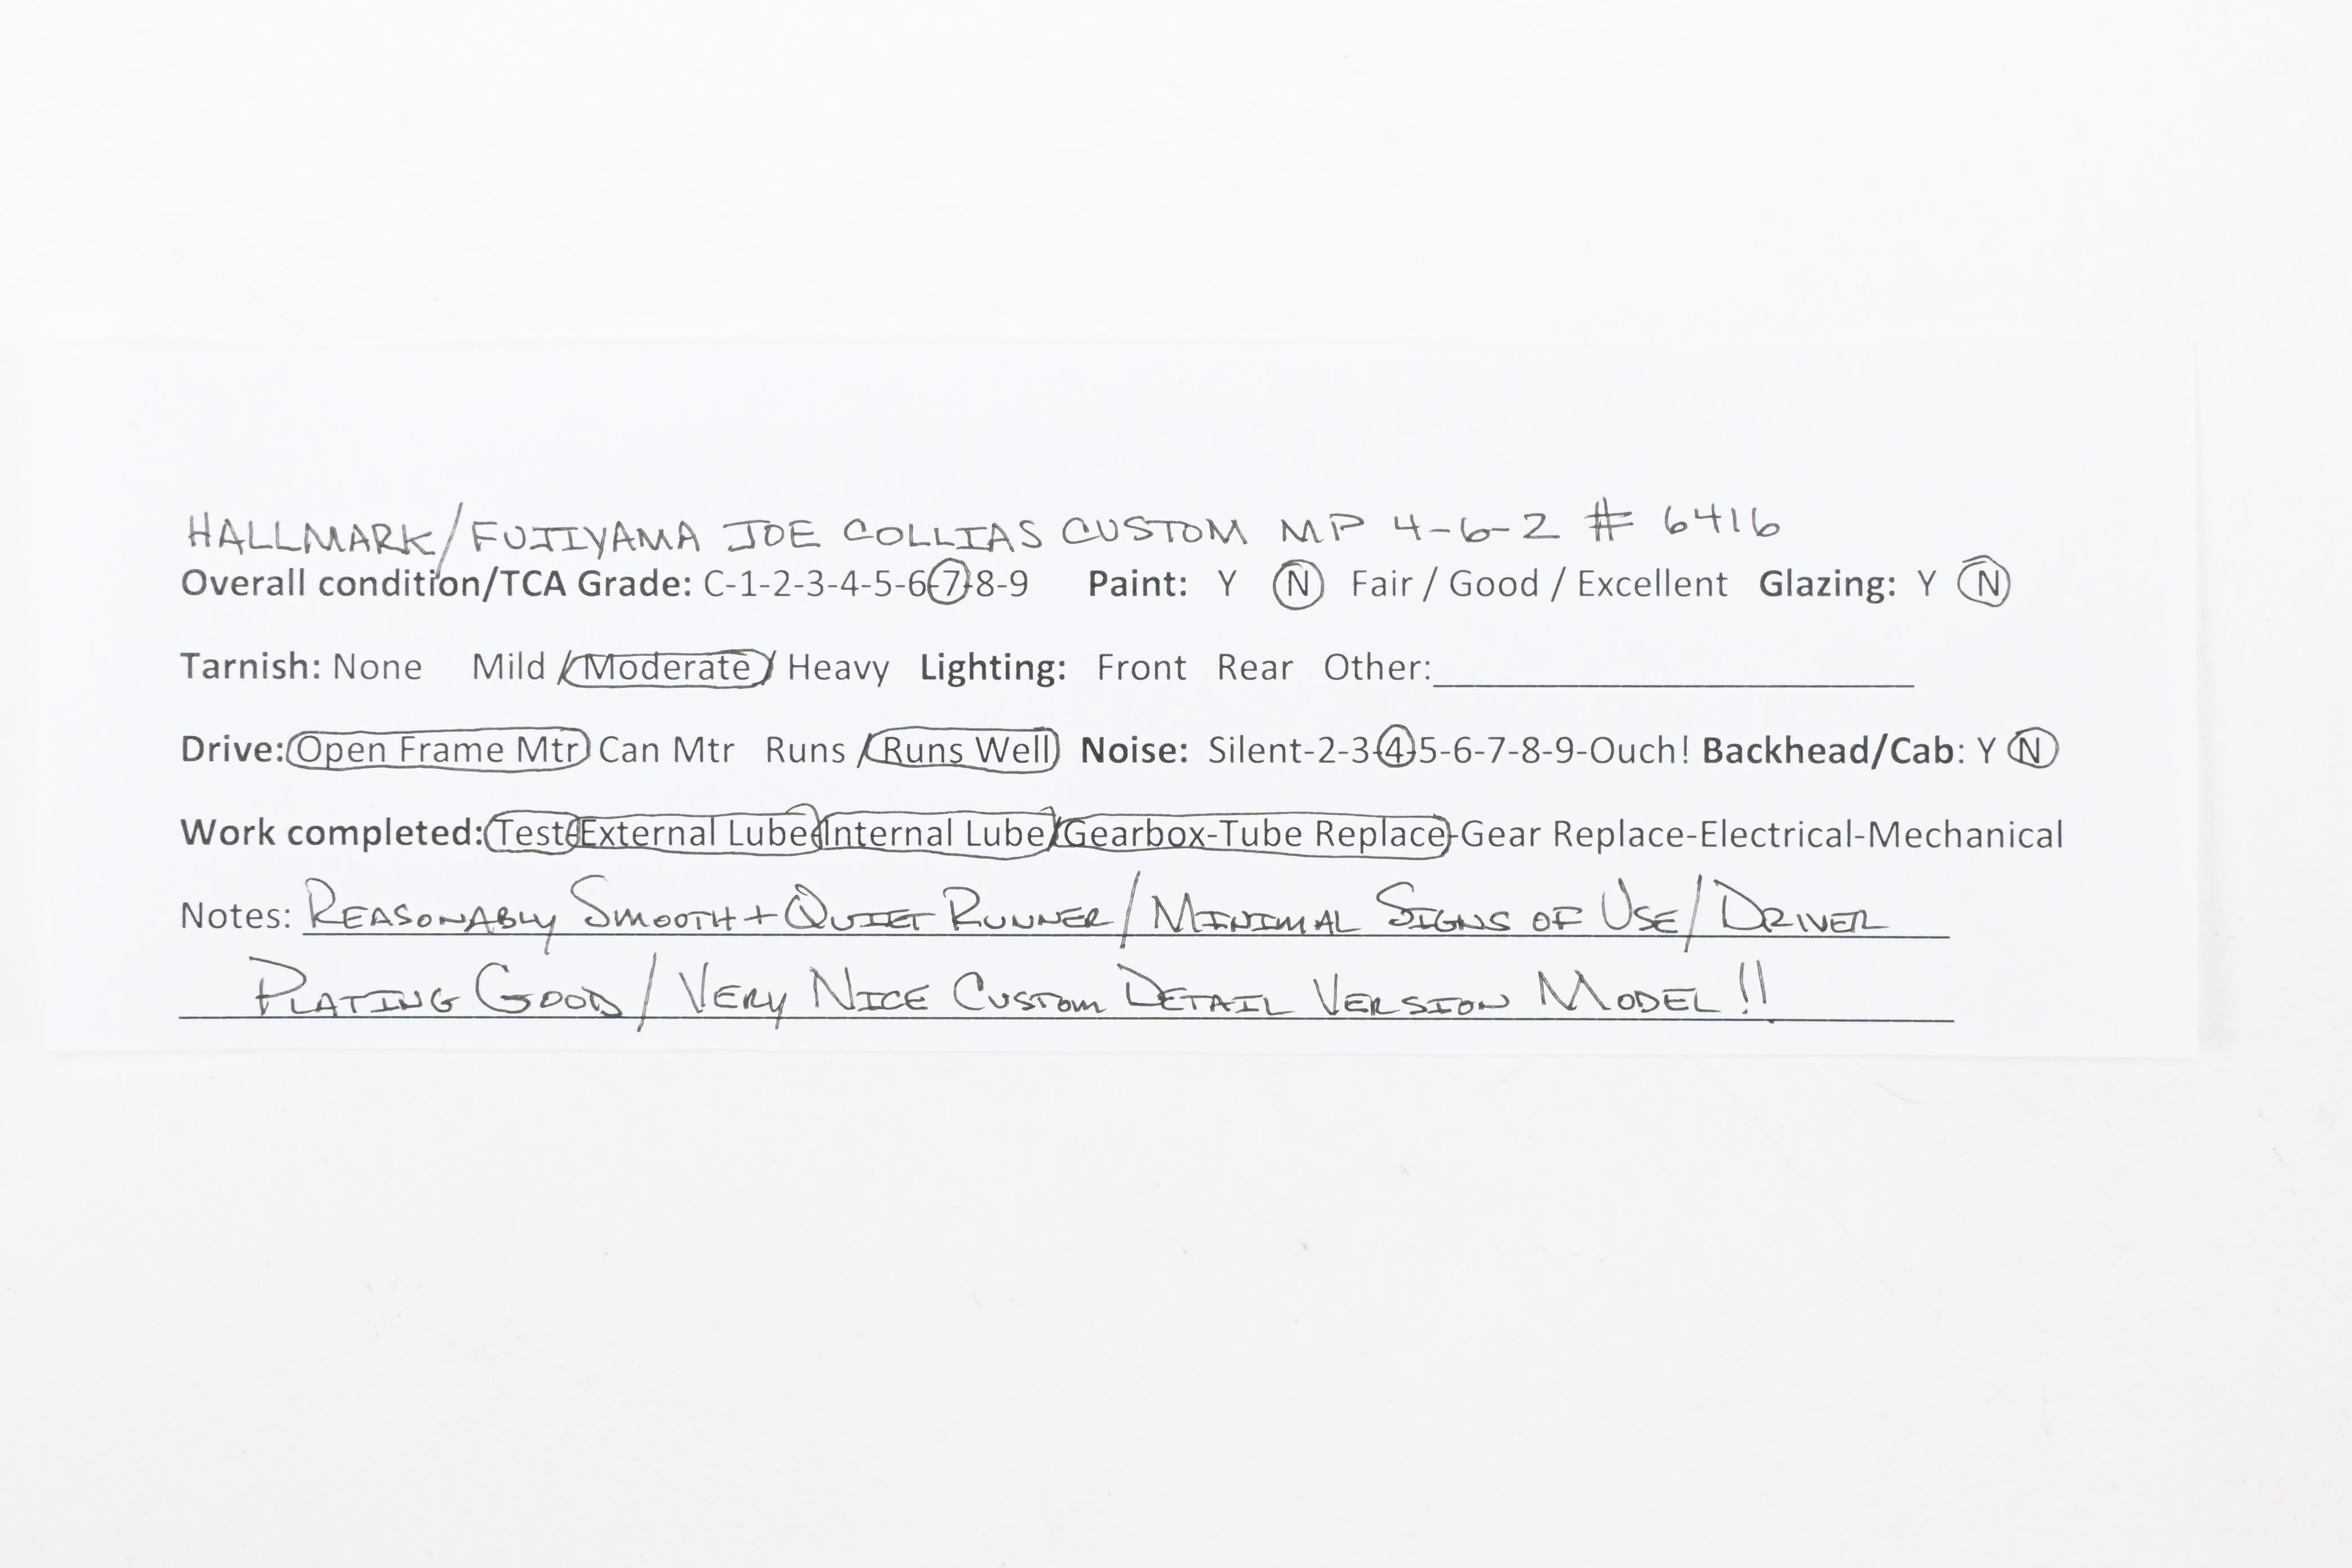 HALLMARK/FUJIYAMA JOE COLLIAS CUSTOM MP 4-6-2 # 6416
Overall condition/TCA Grade: C-1-2-3-4-5-6-7-8-9 Paint: Y N Fair / Good / Excellent Glazing: Y N
Tarnish: None Mild / Moderate / Heavy Lighting: Front Rear Other:
Drive: Open Frame Mtr Can Mtr Runs / Runs Well Noise: Silent-2-3-4-5-6-7-8-9-Ouch! Backhead/Cab: Y N
Work completed: Test-External Lube-Internal Lube/Gearbox-Tube Replace-Gear Replace-Electrical-Mechanical
Notes: REASONABLY SMOOTH + QUIET RUNNER / MINIMAL SIGNS OF USE / DRIVER
PLATING GOOD / VERY NICE CUSTOM DETAIL VERSION MODEL!!